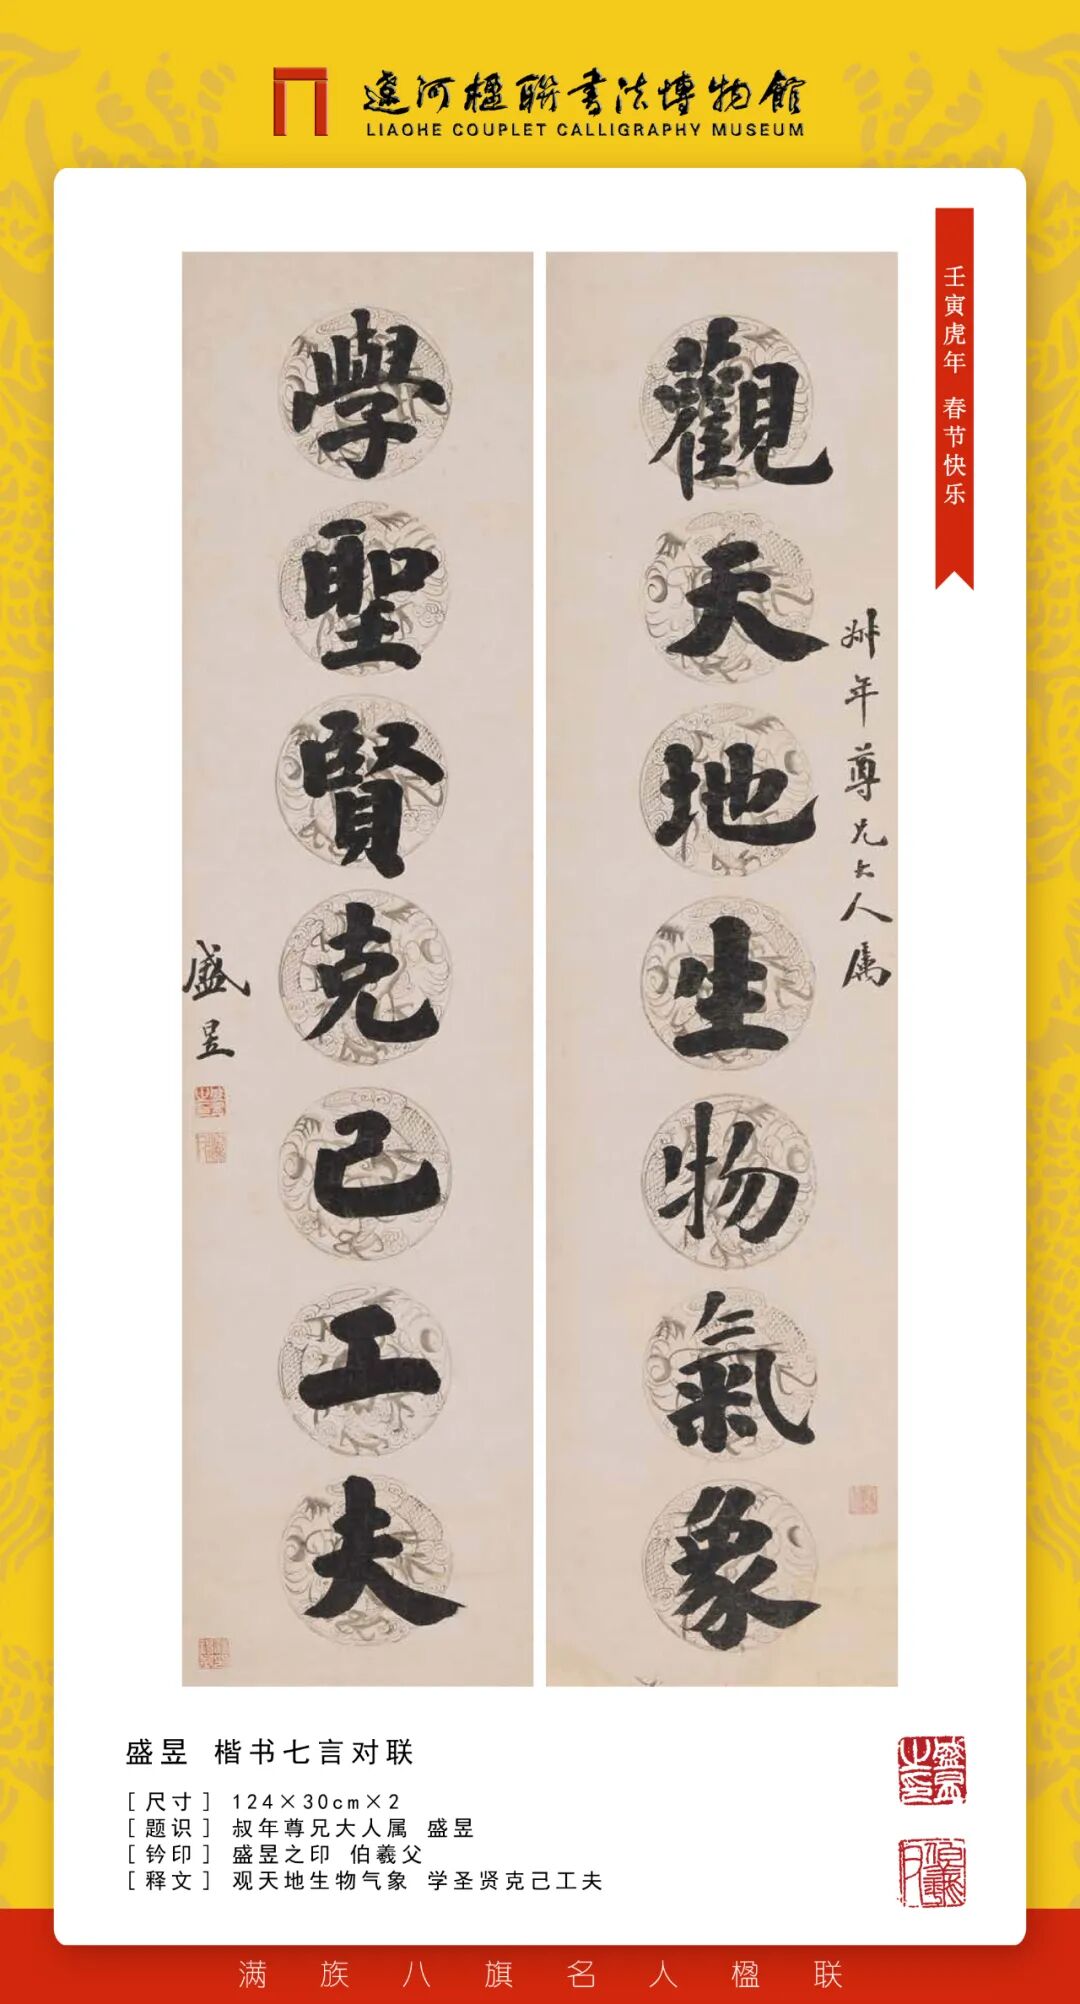 遼河楹聯書法博物館
LIAOHE COUPLET CALLIGRAPHY MUSEUM
壬寅虎年 春节快乐
叔年尊兄大人属
觀天地生物氣象
學聖賢克己工夫
盛昱
盛昱 楷书七言对联
[尺寸] 124×30cm×2
[题识] 叔年尊兄大人属 盛昱
[钤印] 盛昱之印 伯羲父
[释文] 观天地生物气象 学圣贤克己工夫
盛昱之印
伯羲父
满族八旗名人楹联